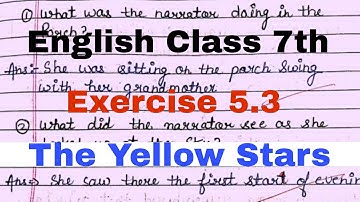 ① What was the narrator doing in the
Porch?
English Class 7th
Ans:- She was sitting on the porch swing
with her grandmother
Exercise 5.3
② What did the narrator see as she
The Yellow Stars
Ans⇒ She saw there the first start of evenin